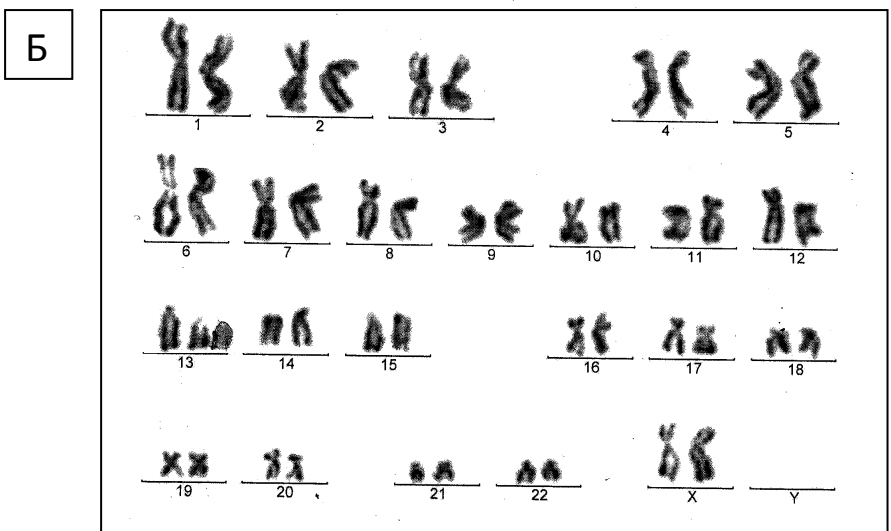 Б
1 2 3 4 5
6 7 8 9 10 11 12
13 14 15 16 17 18
19 20 21 22 X Y